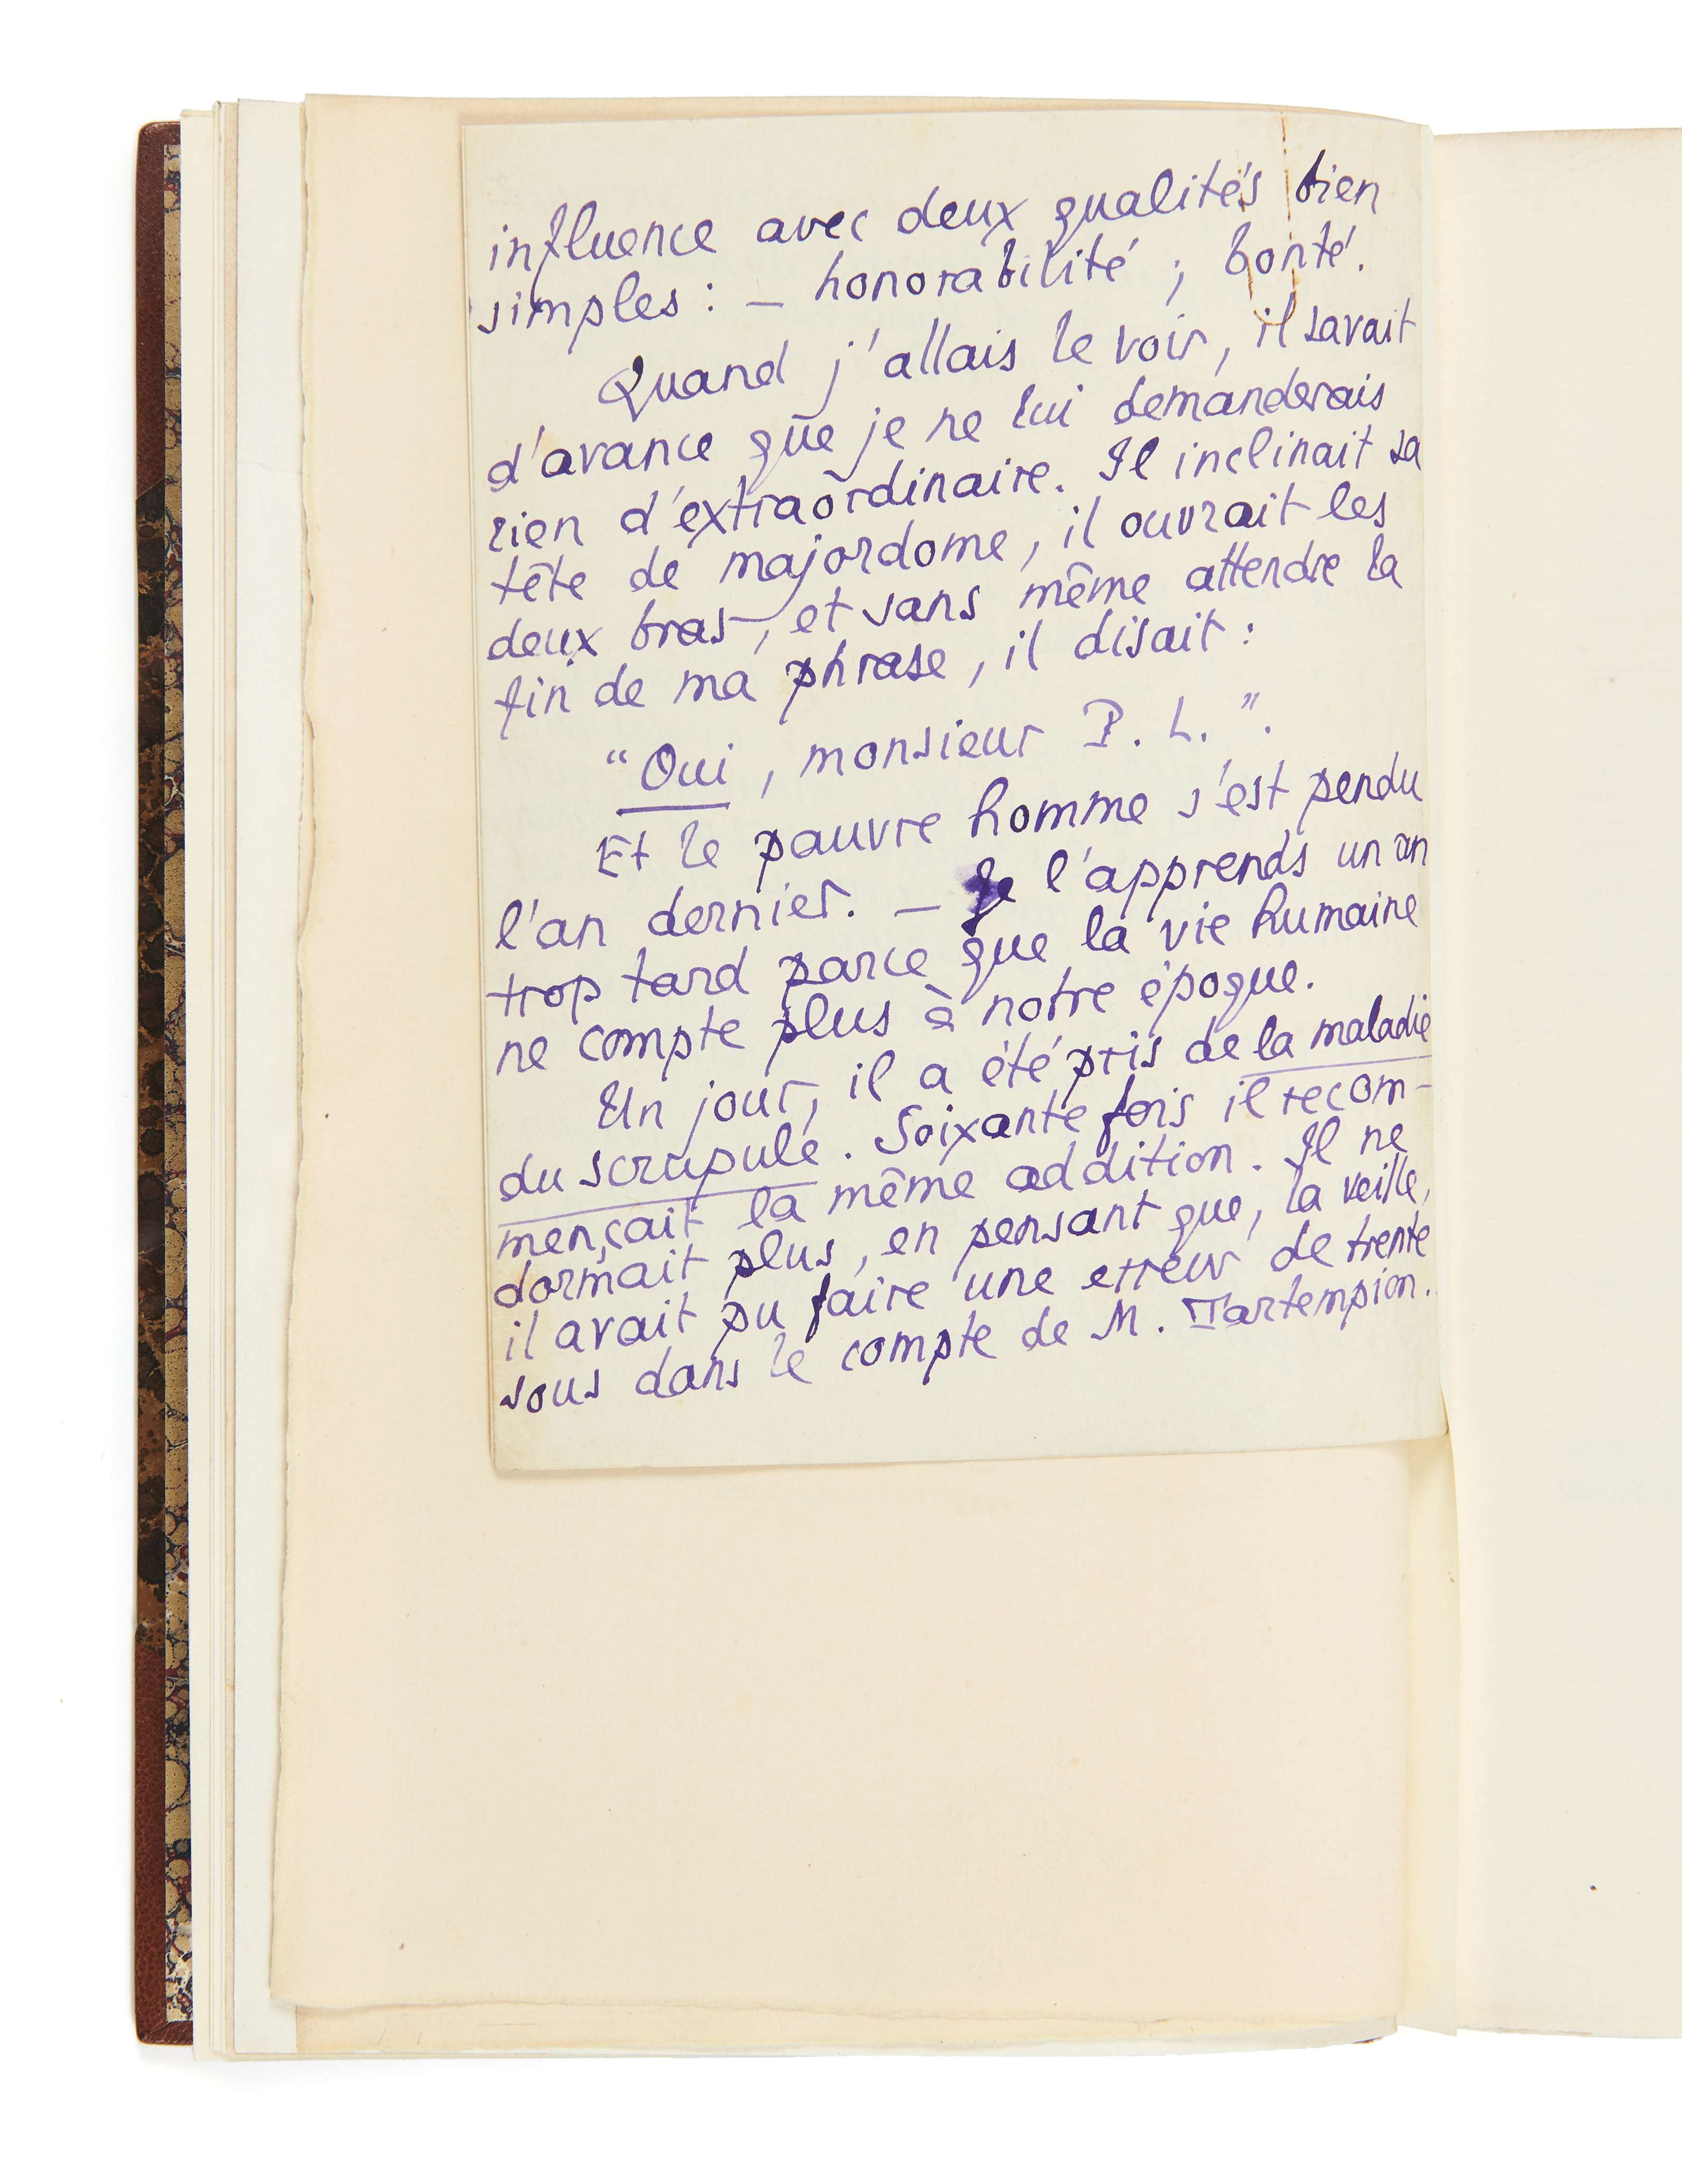 influence avec deux qualités bien
simples : — honorabilité ; bonté.
Quand j'allais le voir, il savait
d'avance que je ne lui demanderais
rien d'extraordinaire. Il inclinait sa
tête de majordome, il ouvrait les
deux bras, et sans même attendre la
fin de ma phrase, il disait :
“Oui, monsieur P. L.”.
Et le pauvre homme s'est pendu
l'an dernier. — Je l'apprends un an
trop tard parce que la vie humaine
ne compte plus à notre époque.
Un jour, il a été pris de la maladie
du scrupule. Soixante fois il recom-
mençait la même addition. Il ne
dormait plus, en pensant que, la veille,
il avait pu faire une erreur de trente
sous dans le compte de M. Tartempion.